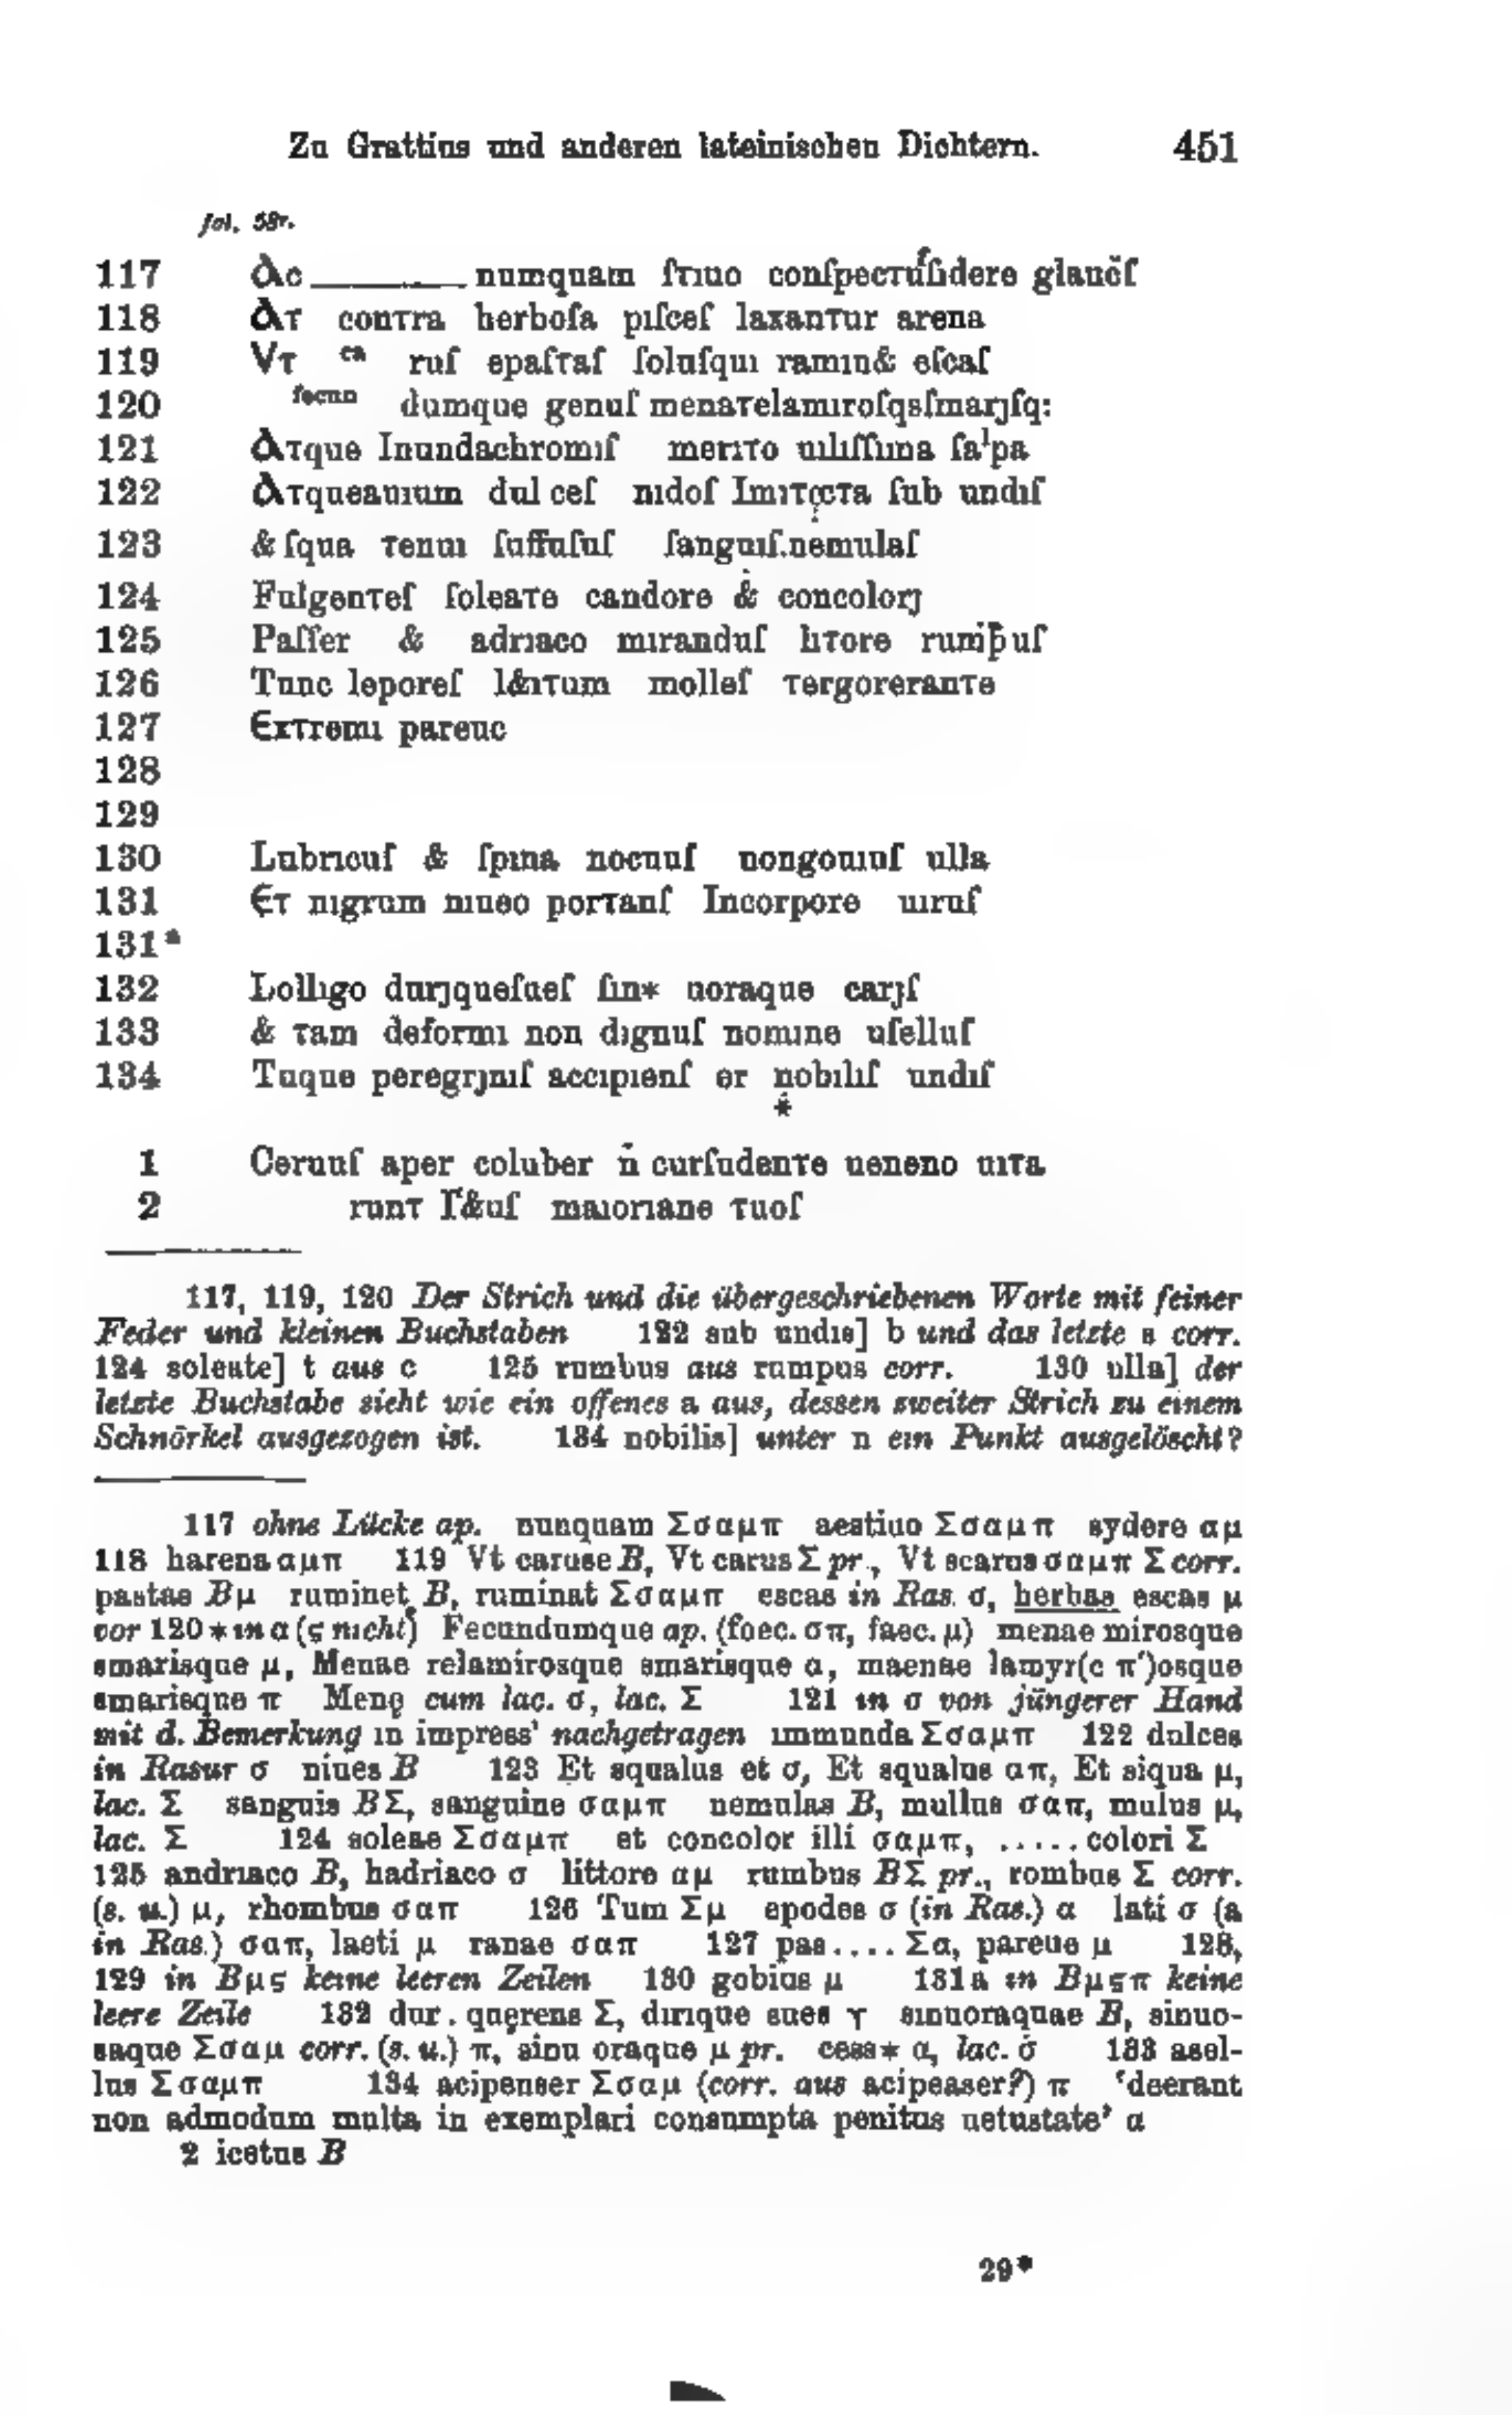 Zu Grattius und anderen lateinischen Dichtern. 451
fol. 58r.
117 Ac ———— numquam ſtiuo conſpectuſſidere glaucſ
118 At contra herboſa piſceſ laxantur arena
119 Vt ca ruſ epaſtaſ ſoluſqui ramin& eſcaſ
120 fecun dumque genuſ menatelamiroſqsſmarjſq:
121 Atque Inundachromiſ merito uiliſſima ſalpa
122 Atqueauium dul ceſ nidoſ Imitata ſub undiſ
123 & ſqua tenui ſuffuſuſ ſanguiſ.nemulaſ
124 Fulgenteſ ſoleate candore & concolorj
125 Paſſer & adriaco miranduſ litore rumpuſ
126 Tunc leporeſ l&itum molleſ tergorerante
127 Extremi pareuc
128
129
130 Lubricuſ & ſpina nocuuſ nongouiuſ ulla
131 Et nigrum niueo portanſ Incorpore uiruſ
131a
132 Lolligo durjqueſueſ ſin* uoraque carjſ
133 & tam deformi non dignuſ nomine uſelluſ
134 Tuque peregrjniſ accipienſ er nobiliſ undiſ
*
1 Ceruuſ aper coluber n̄ curſudente ueneno uita
2 runt I'&uſ maioriane tuoſ
117, 119, 120 Der Strich und die übergeschriebenen Worte mit feiner
Feder und kleinen Buchstaben 122 sub undis] b und das letzte s corr.
124 soleate] t aus c 125 rumbus aus rumpus corr. 130 ulla] der
letzte Buchstabe sieht wie ein offenes a aus, dessen zweiter Strich zu einem
Schnörkel ausgezogen ist. 134 nobilis] unter n ein Punkt ausgelöscht?
117 ohne Lücke ap. nunquam Σσαμπ aestiuo Σσαμπ sydere αμ
118 harena αμπ 119 Vt caruse B, Vt carus Σ pr., Vt scarus σαμπ Σ corr.
pastas Bμ ruminet B, ruminat Σσαμπ escas in Ras. σ, herbas escas μ
vor 120 * in α (ς nicht) Fecundumque ap. (foec. σπ, faec. μ) menae mirosque
smarisque μ, Menae relamirosque smarisque α, maenae lamyr(c π')osque
smarisque π Menę cum lac. σ, lac. Σ 121 in σ von jüngerer Hand
mit d. Bemerkung in impress' nachgetragen immunda Σσαμπ 122 dulces
in Rasur σ niues B 123 Et squalus et σ, Et squalus απ, Et siqua μ,
lac. Σ sanguis BΣ, sanguine σαμπ nemulas B, mullus σαπ, mulus μ,
lac. Σ 124 soleae Σσαμπ et concolor illi σαμπ, .....colori Σ
125 andriaco B, hadriaco σ littore αμ rumbus BΣ pr., rombus Σ corr.
(s. u.) μ, rhombus σαπ 126 Tum Σμ epodes σ (in Ras.) α lati σ (a
in Ras.) σαπ, laeti μ ranae σαπ 127 pas.... Σα, pareue μ 128,
129 in Bμς keine leeren Zeilen 130 gobius μ 131a in Bμςπ keine
leere Zeile 132 dur.quęrens Σ, dirique sues γ sinuoraquae B, sinuo-
saque Σσαμ corr. (s. u.) π, sinu oraque μ pr. cess* α, lac. σ 133 asel-
lus Σσαμπ 134 acipenser Σσαμ (corr. aus acipeaser?) π 'deerant
non admodum multa in exemplari consumpta penitus uetustate' α
2 icetus B
29*